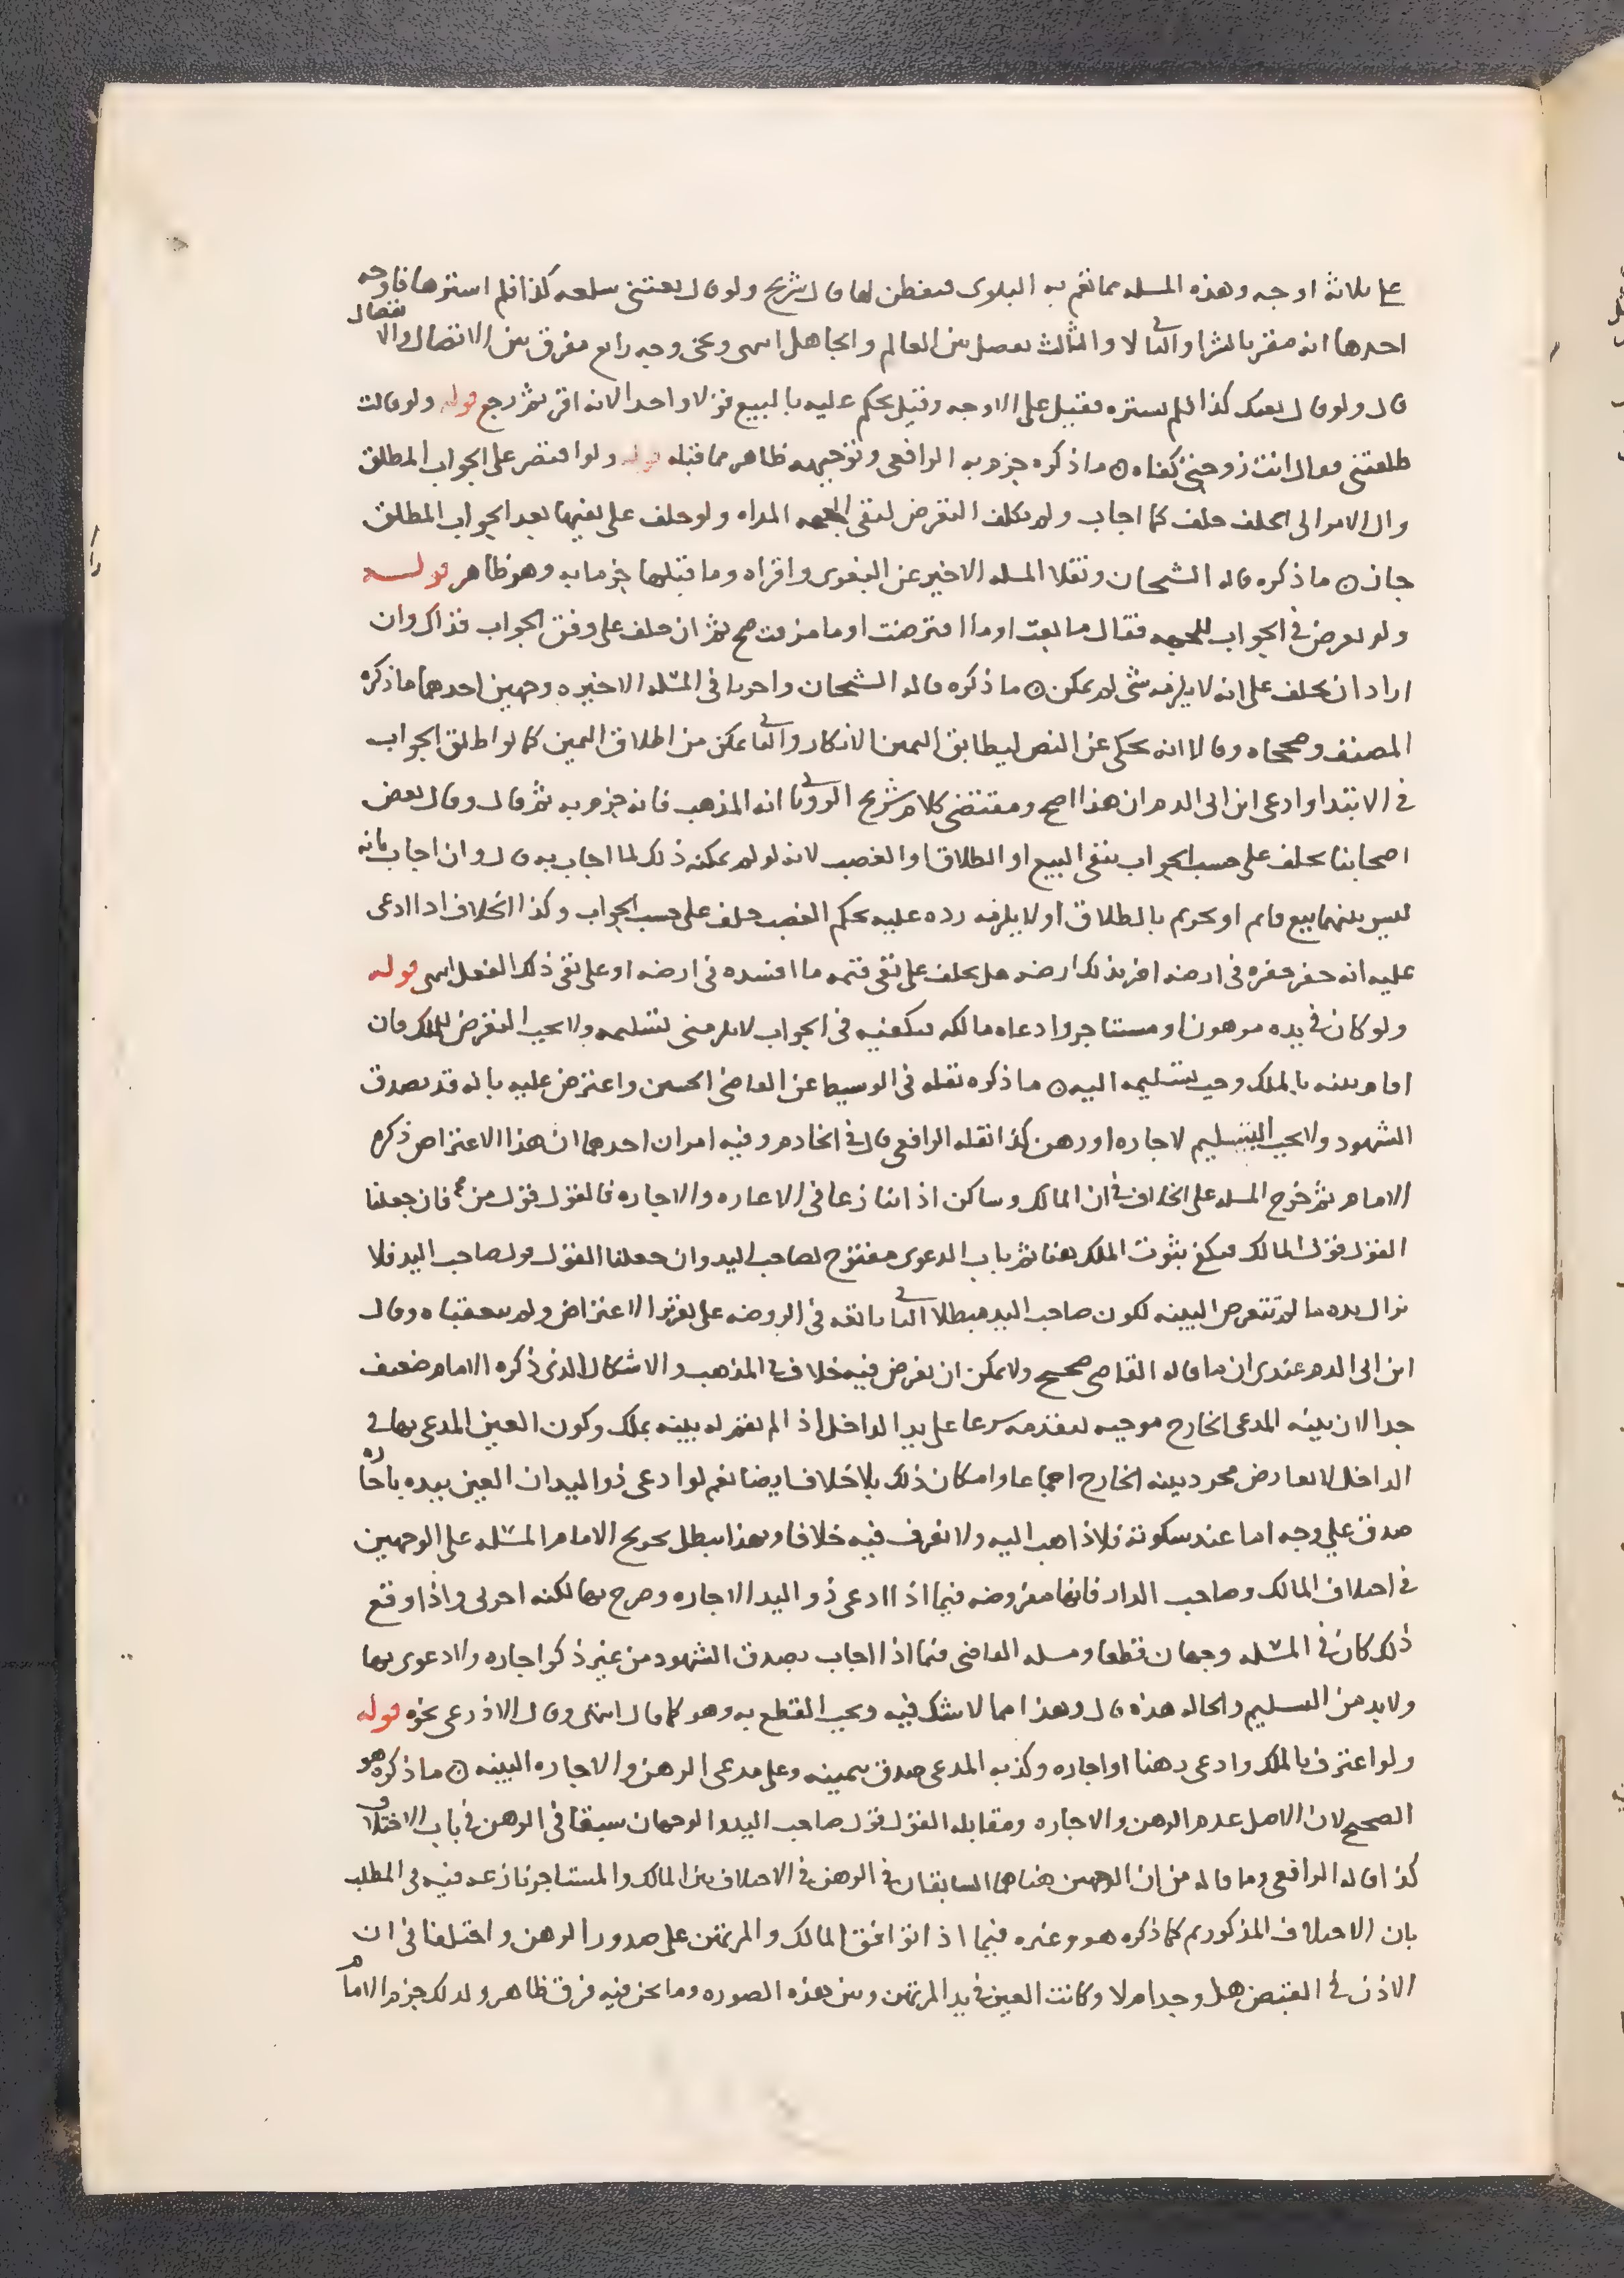 على ثلاثة اوجه وهذه المسله مما تعم به البلوى فتفطن لها قال شريح ولو قال بعتنى سلعه كذا فلم اشترها فاوجه
احدها انه مقر بالشرا والثانى لا والثالث يفصل بين العالم والجاهل انتهى ويجى وجه رابع يفرق بين الاتصال والانفصال
قال ولو قال بعتك كذا فلم يشتره فقيل على الاوجه وقيل يحكم عليه بالبيع قولا واحدا لانه اقر ثم رجع قوله ولو قالت
طلقتنى فقال انت زوجتى كفاه ه ما ذكره جزم به الرافعى وتوجيهه ظاهر مما قبله قوله ولو اقتصر على الجواب المطلق
وال الامر الى الحلف حلف كما اجاب ولم يكلف التعرض لنفى الجهه المدعاه ولو حلف على نفيها بعد الجواب المطلق
جاز ه ما ذكره قاله الشيخان ونقلا المسله الاخير عن البغوى واقراه وما قبلها جزما به وهو ظاهر قوله
ولو تعرض فى الجواب للجهه فقال ما بعت او ما اقترضت او ما مزقت صح ثم ان حلف على وفق الجواب فذاك وان
اراد ان يحلف على انه لا يلزمه شى لم يمكن ه ما ذكره قاله الشيخان واجريا فى المسله الاخيره وجهين احدهما ما ذكره
المصنف وصححاه وقالا انه يحكى عن النص ليطابق اليمين الانكار والثانى يمكن من اطلاق اليمين كما لو اطلق الجواب
فى الابتدا وادعى ابن ابى الدم ان هذا اصح ومقتضى كلام شريح الرويانى انه المذهب فانه جزم به ثم قال وقال بعض
اصحابنا يحلف على حسب الجواب بنفى البيع او الطلاق او الغصب لانه لو لم يمكنه ذلك لما اجاب به قال وان اجاب بانه
ليس بينهما بيع قايم او تحريم بالطلاق او لا يلزمه رده عليه بحكم الغصب حلف على حسب الجواب وكذا الخلاف اذا ادعى
عليه انه حفر حفره فى ارضه اضر بذلك ارضه هل يحلف على نفى قيمه ما افسده فى ارضه او على نفى ذلك الفعل انتهى قوله
ولو كان فى يده مرهون او مستاجر وادعاه مالكه فيكفيه فى الجواب لا يلزمنى تسليمه ولا يجب التعرض للملك فان
اقام بينه بالملك وجب تسليمه اليه ه ما ذكره نقله فى الوسيط عن القاضى الحسين واعترض عليه بانه قد يصدق
الشهود ولا يجب التسليم لاجاره او رهن كذا نقله الرافعى قال فى الخادم وفيه امران احدهما ان هذا الاعتراض ذكره
الامام ثم خرج المسله على الخلاف فى ان المالك وساكن اذا تنازعا فى الاعاره والاجاره فالقول قول من فان جعلنا
القول قول المالك فيكفى ثبوت الملك هنا ثم باب الدعوى مفتوح لصاحب اليد وان جعلنا القول قول صاحب اليد فلا
تزال يده ما لم تتعرض البينه لكون صاحب اليد مبطلا الثانى تابعه فى الروضه على تقرير الاعتراض ولم يتعقباه وقال
ابن ابى الدم عندى ان ما قاله القاضى صحيح ولا يمكن ان يفرض فيه خلاف فى المذهب والاشكال الذى ذكره الامام ضعيف
جدا لان بينه المدعى الخارج موجبه لتقدمه شرعا على يد الداخل اذ لم تقم له بينه بملك وكون العين المدعى بها فى
الداخل لا تعارض مجرد بينه الخارج اجماعا وامكان ذلك بلا خلاف ايضا نعم لو ادعى ذو اليد ان العين بيده باجاره
صدق على وجه اما عند سكوته فلا ذاهب اليه ولا نعرف فيه خلافا وبهذا يبطل تخريج الامام المسله على الوجهين
فى اختلاف المالك وصاحب الدار فانها مفروضه فيما اذا ادعى ذو اليد الاجاره وصرح بها لكنه احرى واذا وقع
ذلك كان فى المسله وجهان قطعا ومسله القاضى فيما اذا اجاب بصدق الشهود من غير ذكر اجاره ولا دعوى بها
ولا بد من التسليم والحاله هذه قال وهذا مما لا شك فيه ويجب القطع به وهو كما قال انتهى وقال الاذرعى نحوه قوله
ولو اعترف بالملك وادعى رهنا او اجاره وكذبه المدعى صدق بيمينه وعلى مدعى الرهن والاجاره البينه ه ما ذكره هو
الصحيح لان الاصل عدم الرهن والاجاره ومقابله القول قول صاحب اليد والوجهان سبقا فى الرهن فى باب الاختلاف
كذا قاله الرافعى وما قاله من ان الوجهين هنا هما السابقان فى الرهن فى الاختلاف بين المالك والمستاجر نازعه فيه فى المطلب
بان الاختلاف المذكور ثم كما ذكره هو وغيره فيما اذا توافق المالك والمرتهن على صدور الرهن واختلفا فى ان
الاذن فى القبض هل وجد ام لا وكانت العين فى يد المرتهن وبين هذه الصوره وما نحن فيه فرق ظاهر ولذلك جزم الامام